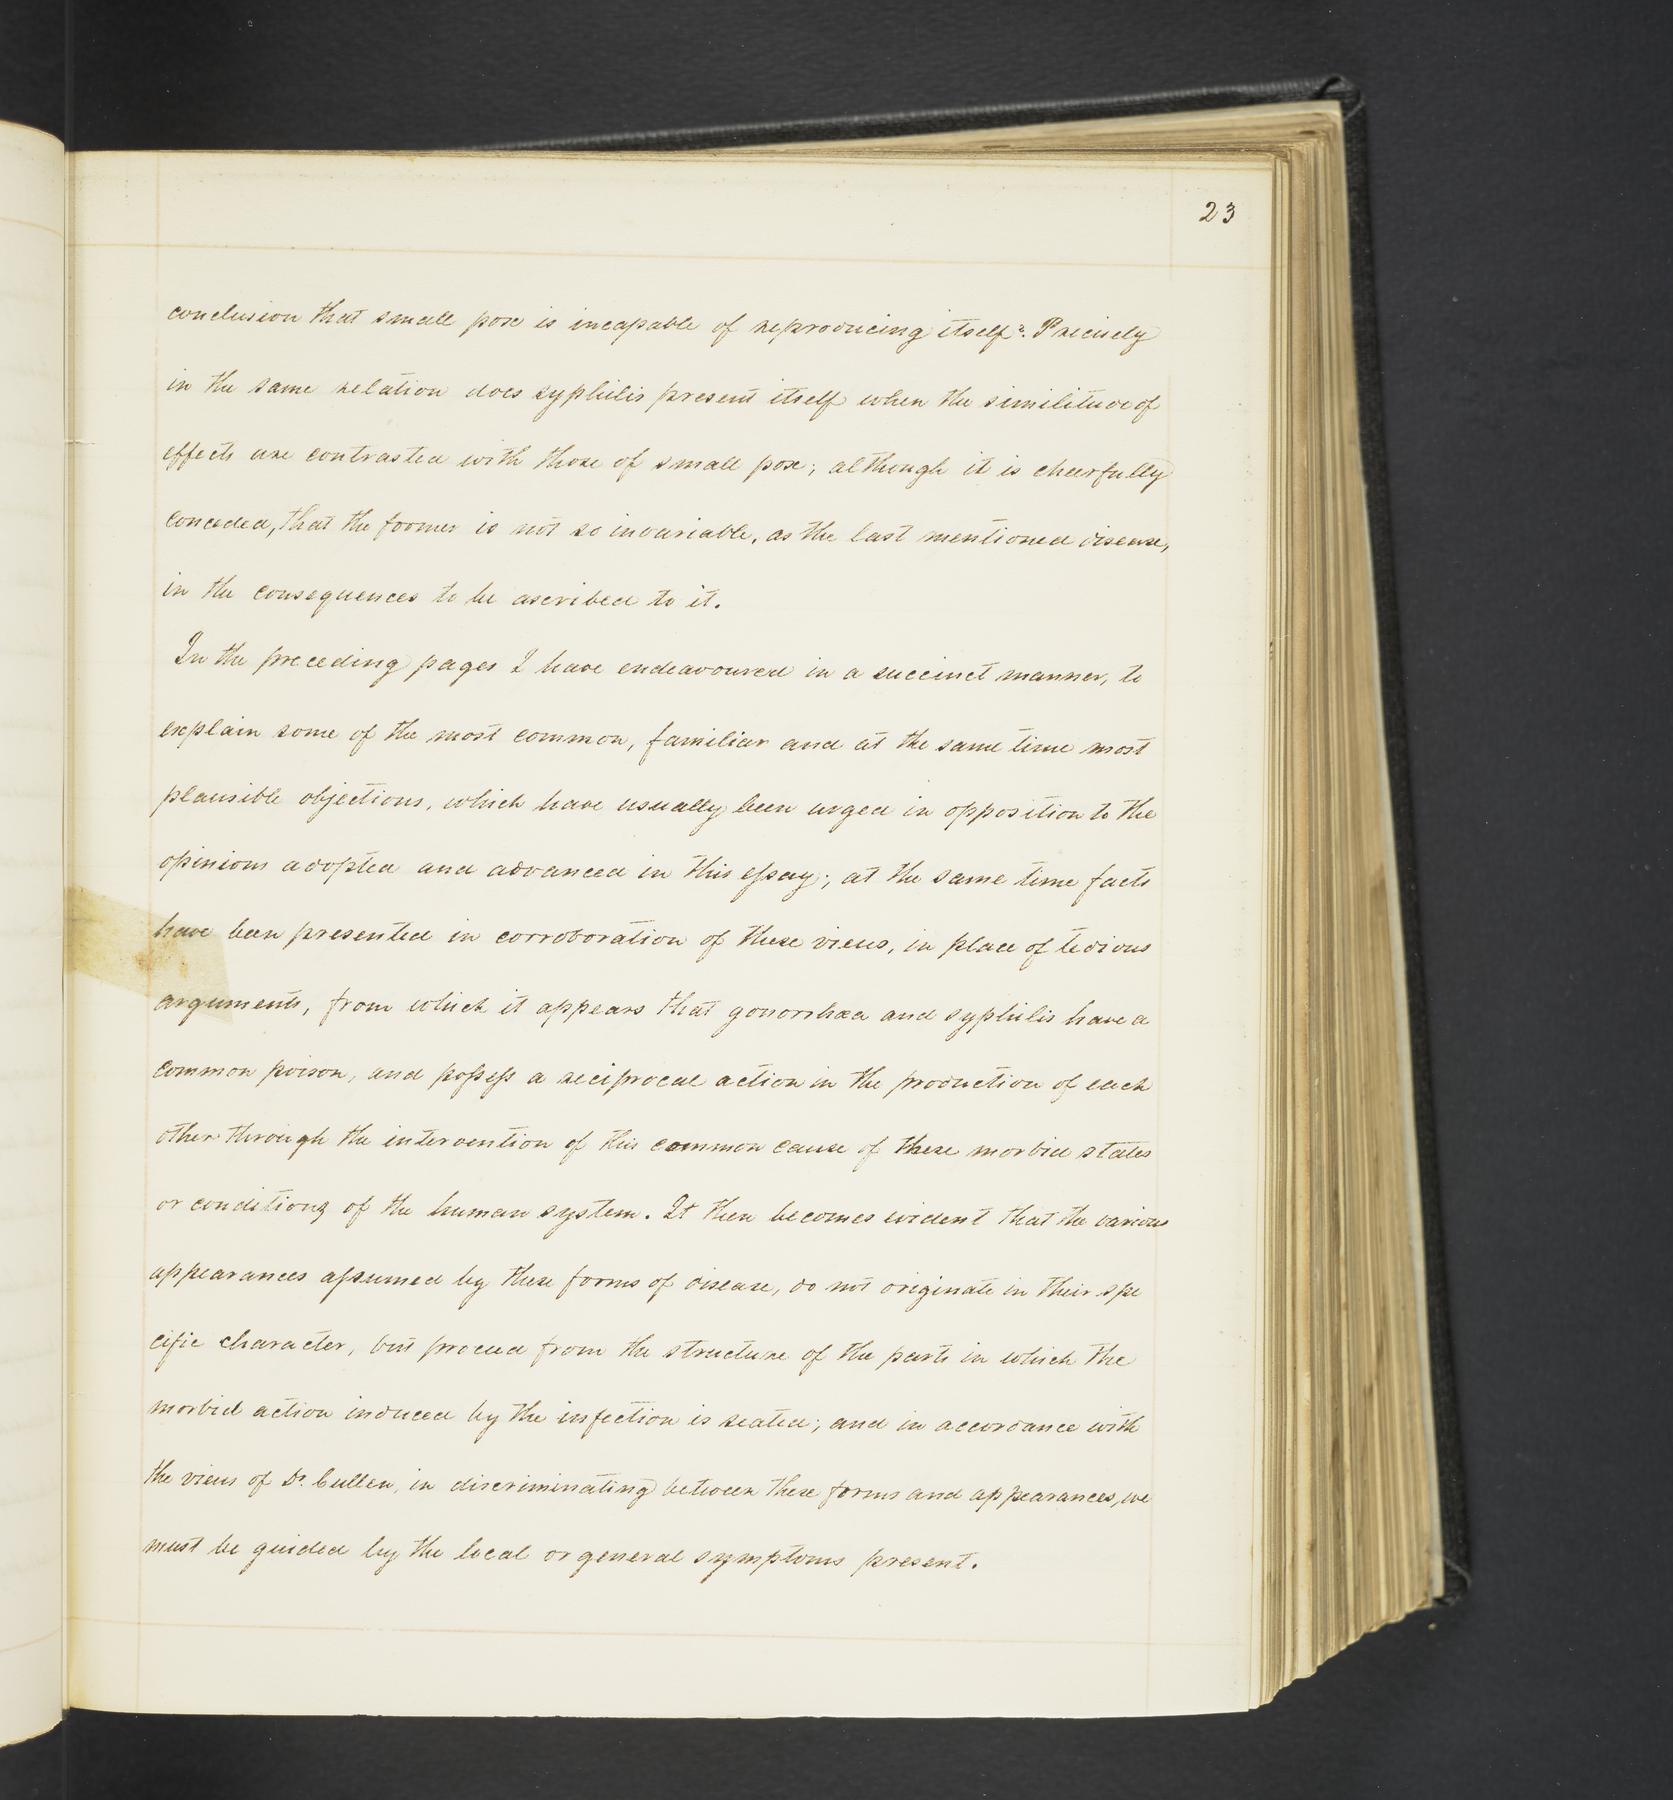 23
conclusion that small pox is incapable of reproducing itself?. Precisely
in the same relation does syphilis present itself when the similitude of
effects are contrasted with those of small pox; although it is cheerfully
conceded, that the former is not so invariable, as the last mentioned disease,
in the consequences to be ascribed to it.
In the preceding pages I have endeavoured in a succinct manner, to
explain some of the most common, familiar and at the same time most
plausible objections, which have usually been urged in opposition to the
opinions adopted and advanced in this essay; at the same time facts
have been presented in corroboration of these views, in place of tedious
arguments, from which it appears that gonorrhœa and syphilis have a
common poison, and possess a reciprocal action in the production of each
other through the intervention of this common cause of these morbid states
or conditions of the human system. It then becomes evident that the various
appearances assumed by these forms of disease, do not originate in their spe
cific character, but proceed from the structure of the parts in which the
morbid action induced by the infection is seated; and in accordance with
the views of Dr. Cullen, in discriminating between these forms and appearances, we
must be guided by the local or general symptoms present.